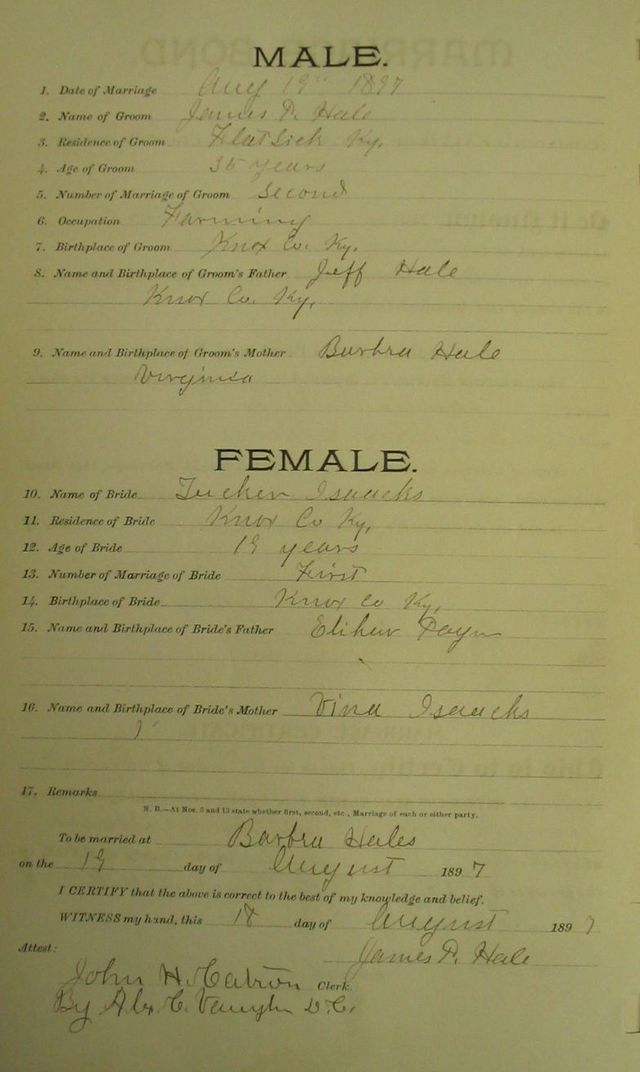 MALE.
1. Date of Marriage Aug 19" 1897
2. Name of Groom James P. Hale
3. Residence of Groom Flat Lick Ky,
4. Age of Groom 35 years
5. Number of Marriage of Groom Second
6. Occupation Farming
7. Birthplace of Groom Knox Co. Ky.
8. Name and Birthplace of Groom's Father Jeff Hale
Knox Co. Ky,
9. Name and Birthplace of Groom's Mother Barbra Hale
Virginia
FEMALE.
10. Name of Bride Isaacks
11. Residence of Bride Knox Co Ky,
12. Age of Bride 19 years
13. Number of Marriage of Bride First
14. Birthplace of Bride Knox Co Ky,
15. Name and Birthplace of Bride's Father
16. Name and Birthplace of Bride's Mother Vina Isaacks
17. Remarks
N. B.—At Nos. 5 and 13 state whether first, second, etc., Marriage of each or either party.
To be married at Barbra Hales
on the 19 day of August 1897
I CERTIFY that the above is correct to the best of my knowledge and belief.
WITNESS my hand, this 18 day of August 1897
James P. Hale
Attest:
John H. Catron Clerk.
By Alex. C. Vaughn D.C.